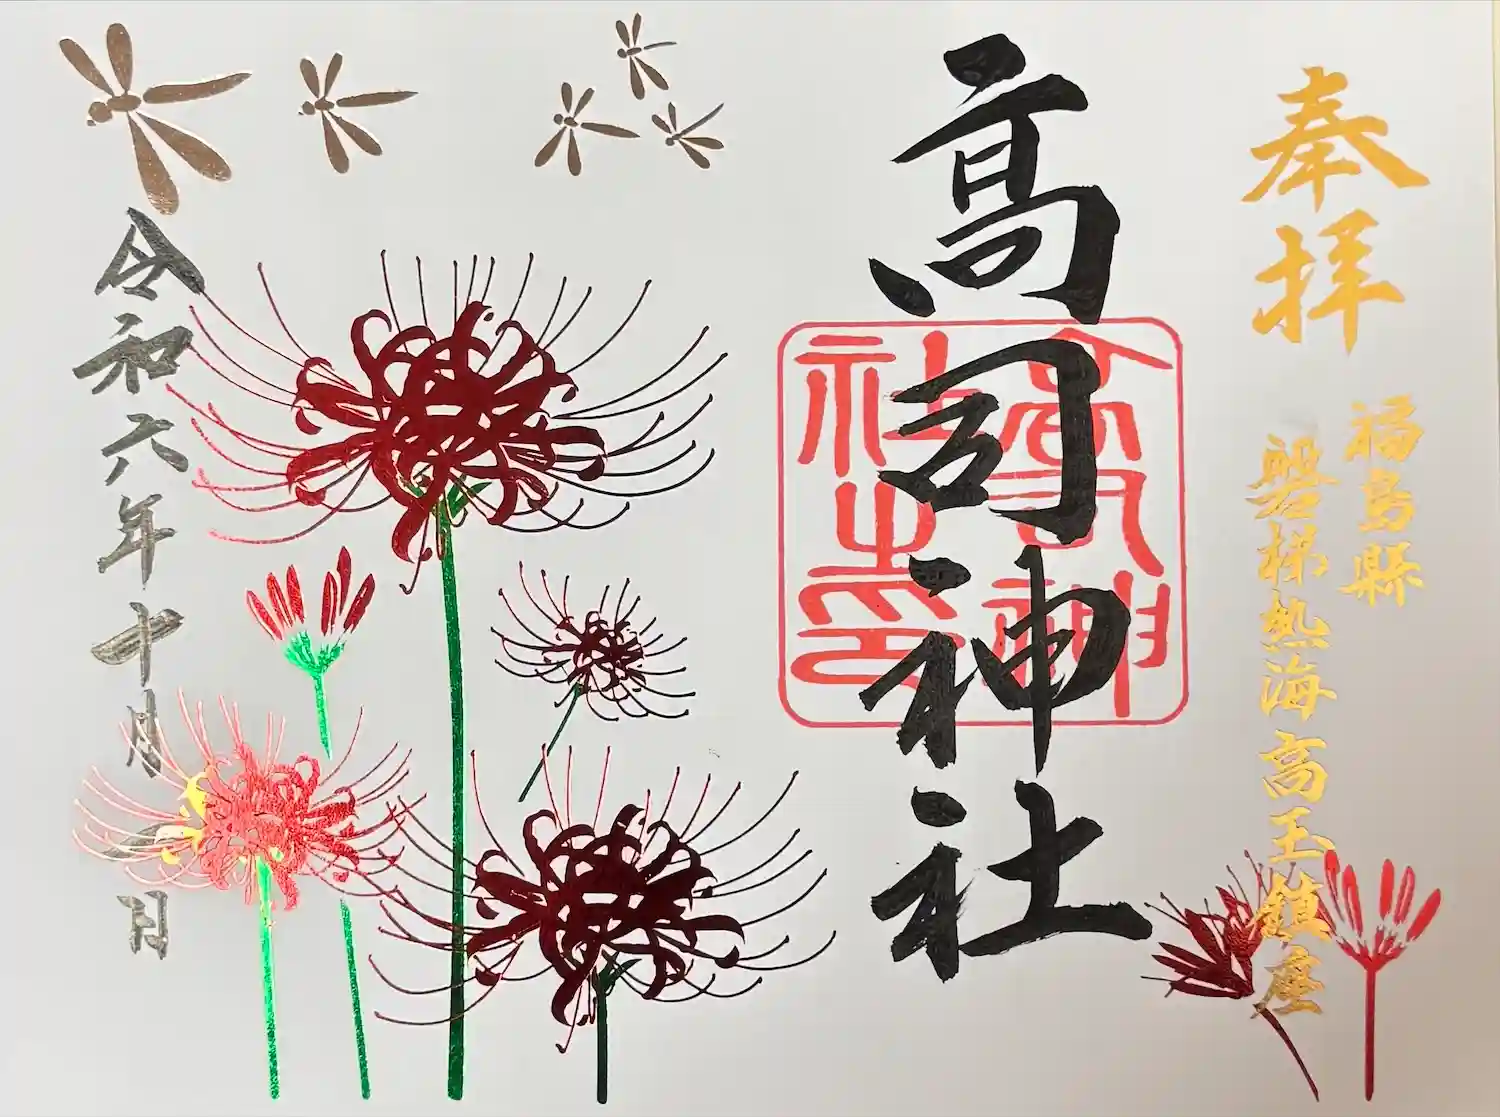 奉拝
福島縣
磐梯熱海高玉鎮座
高司神社
高司神社之印
令和六年十月 日